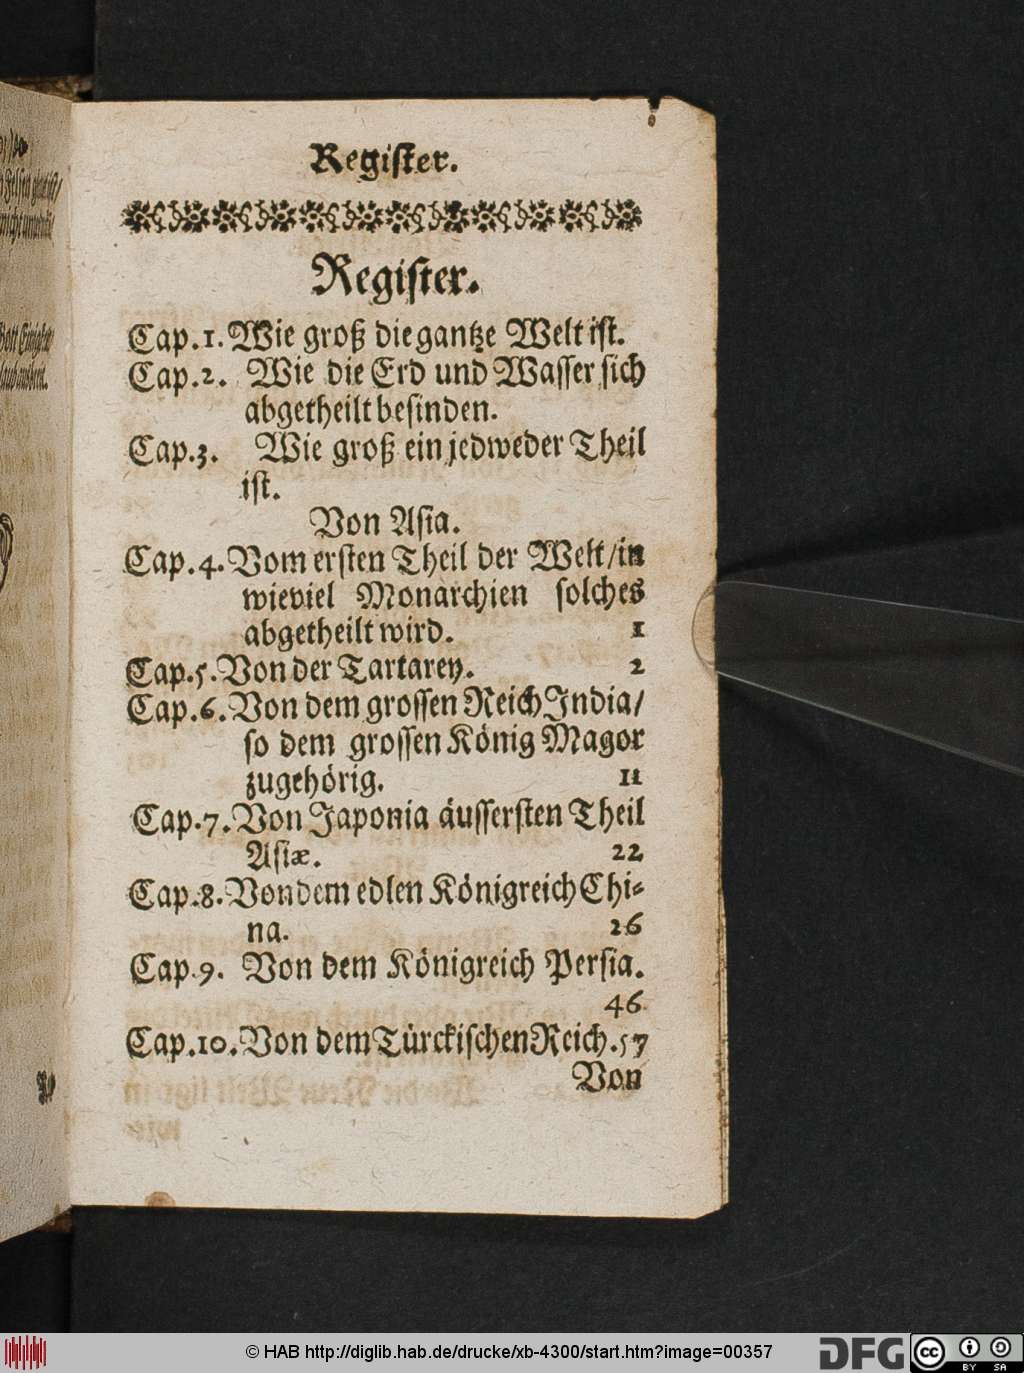 Register.
Register.
Cap.1. Wie groß die gantze Welt ist.
Cap.2. Wie die Erd und Wasser sich
abgetheilt befinden.
Cap.3. Wie groß ein jedweder Theil
ist.
Von Asia.
Cap.4. Vom ersten Theil der Welt/in
wieviel Monarchien solches
abgetheilt wird. 1
Cap.5. Von der Tartarey. 2
Cap.6. Von dem grossen Reich India/
so dem grossen König Magor
zugehörig. 11
Cap.7. Von Japonia äussersten Theil
Asiæ. 22
Cap.8. Von dem edlen Königreich Chi-
na. 26
Cap.9. Von dem Königreich Persia.
46
Cap.10. Von dem Türckischen Reich. 57
Von
© HAB http://diglib.hab.de/drucke/xb-4300/start.htm?image=00357
DFG
cc
BY SA